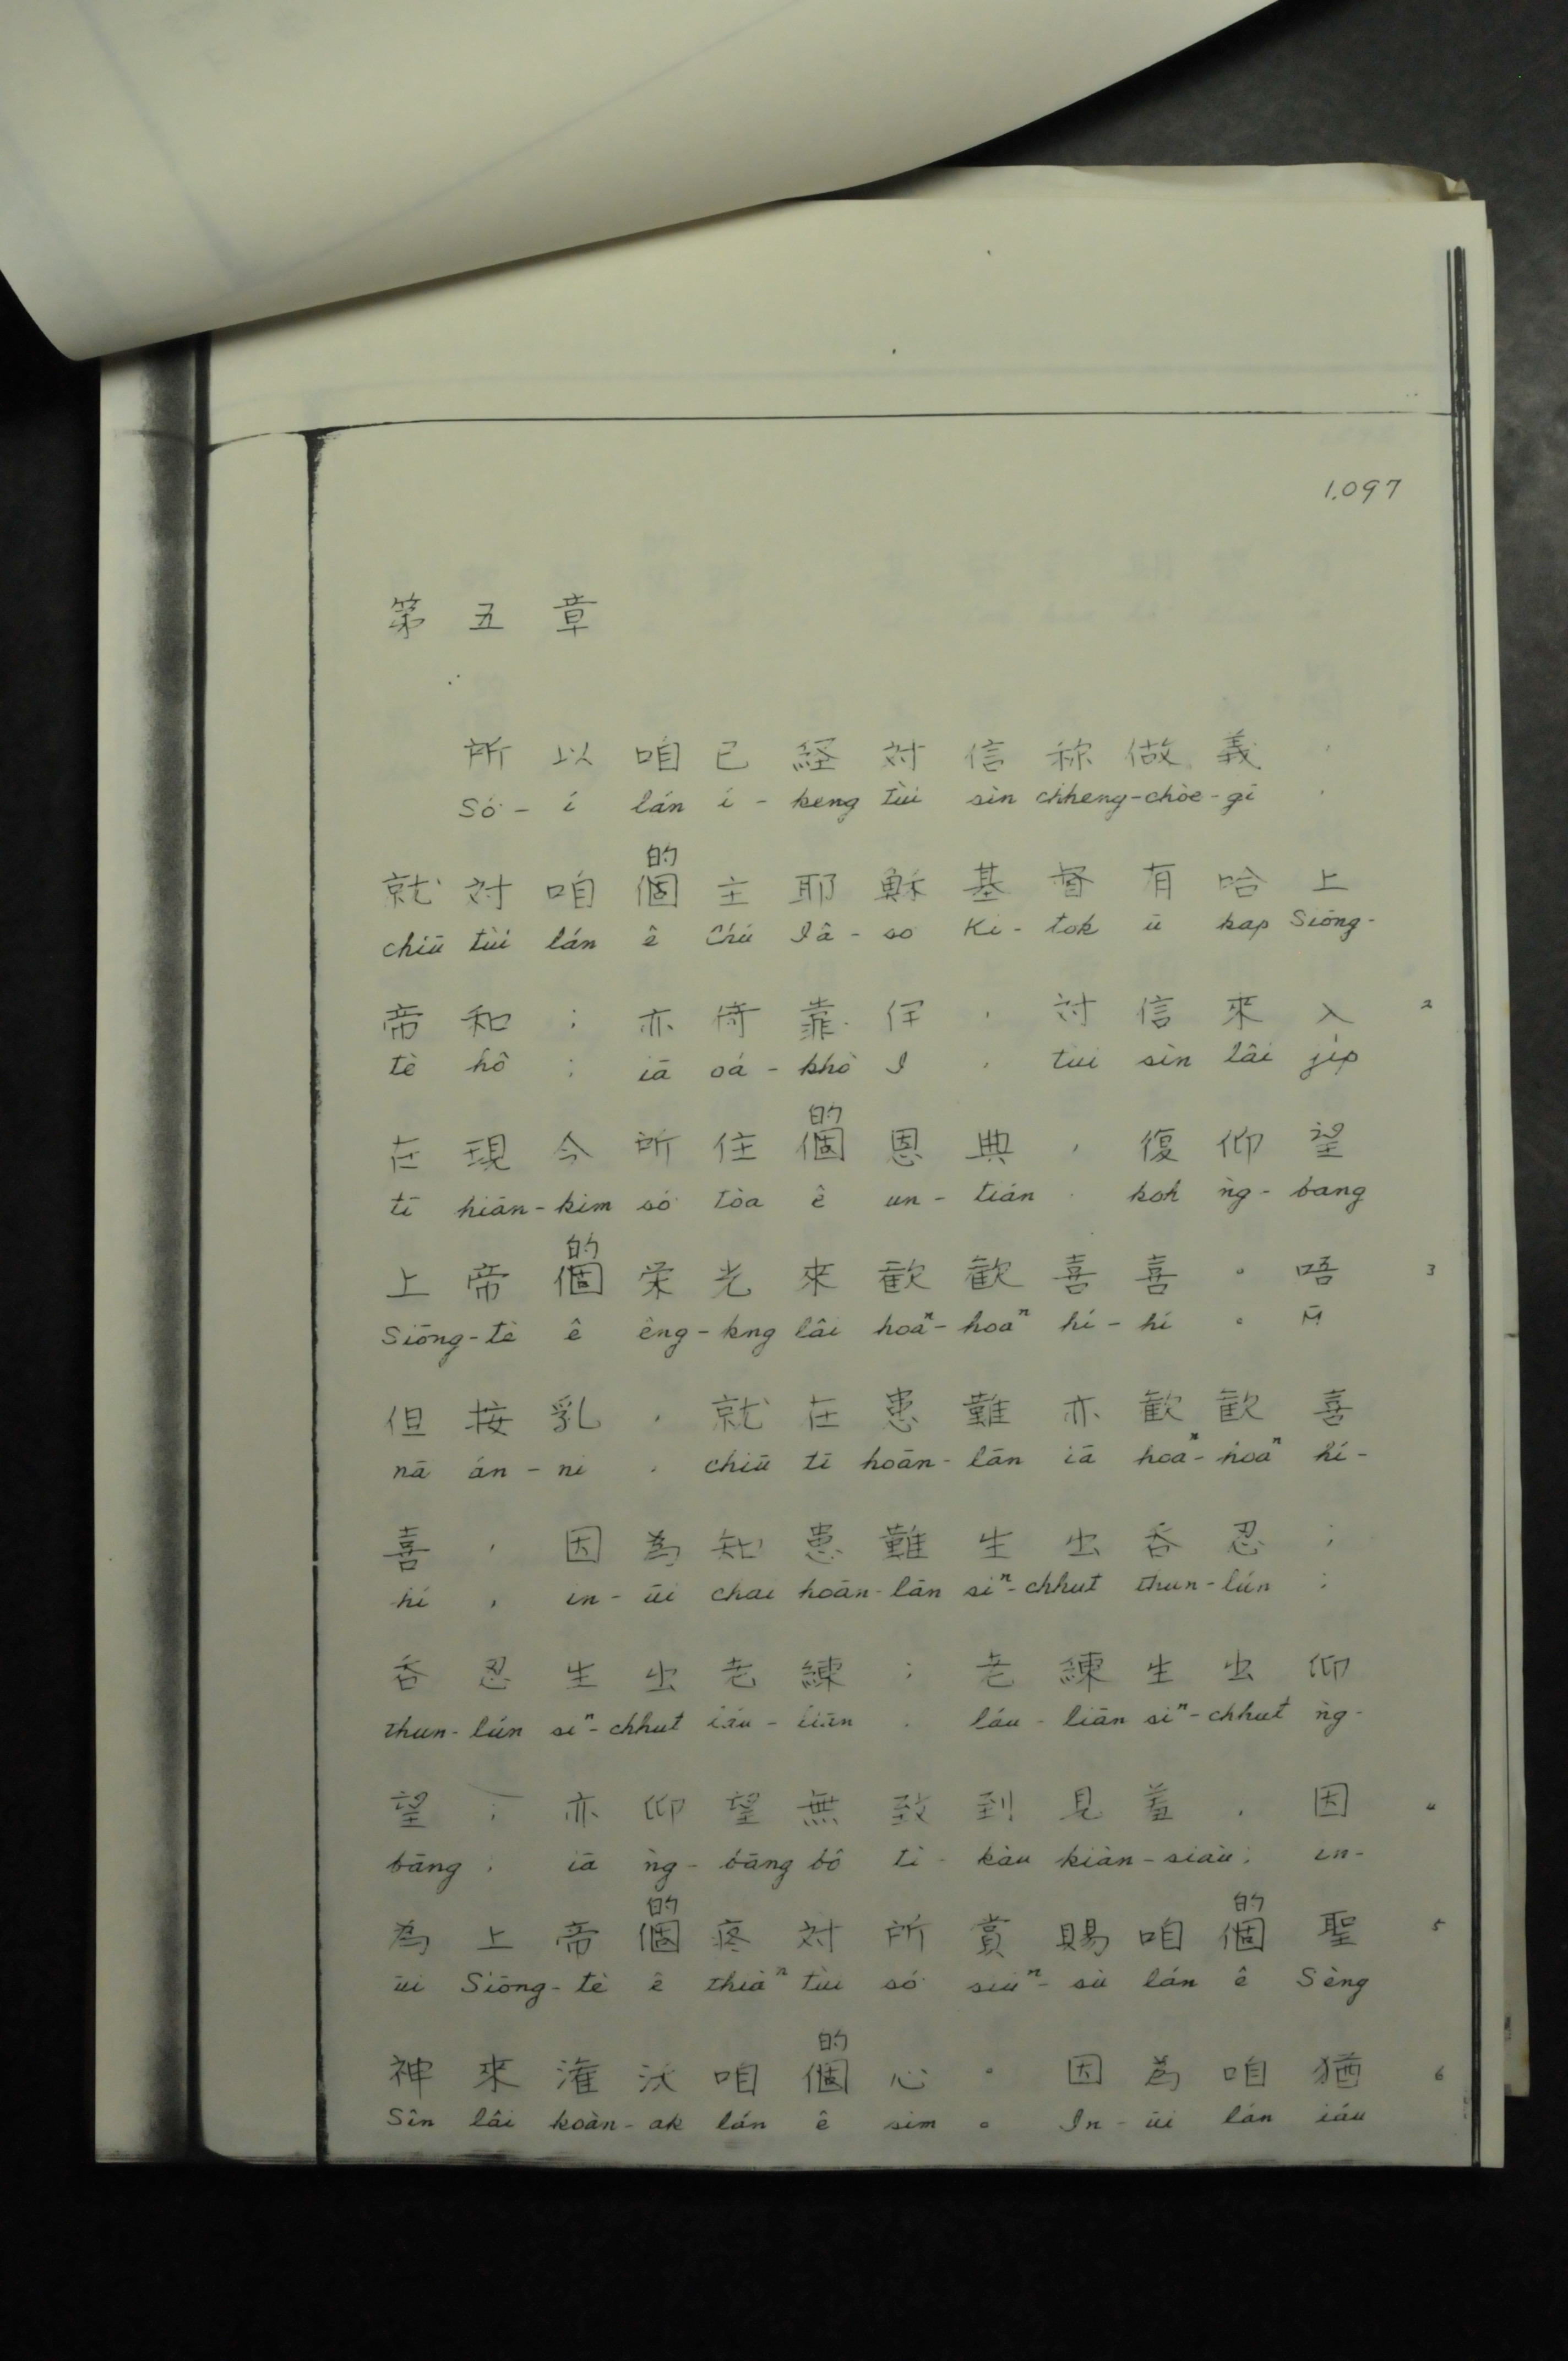 1.097
第五章
所以咱已経対信称做義，
Só͘-í lán í-keng tùi sìn chheng-chòe-gī,
的
就対咱個主耶穌基督有哈上
chiū tùi lán ê Chú Iâ-so Ki-tok ū kap Siōng-
帝和；亦倚靠伊，対信來入 2
tè hô; iā oá-khò I, tùi sìn lâi ji̍p
的
在現今所住個恩典，復仰望
tī hiān-kim só͘ tòa ê un-tián, koh ǹg-bang
的
上帝個栄光來歡歡喜喜。唔 3
Siōng-tè ê êng-kng lâi hoaⁿ-hoaⁿ hí-hí。M̄
但按乳，就在患難亦歡歡喜
nā án-ni, chiū tī hoān-lān iā hoaⁿ-hoaⁿ hí-
喜，因為知患難生出吞忍；
hí, in-ūi chai hoān-lān siⁿ-chhut thun-lún;
吞忍生出老練；老練生出仰
thun-lún siⁿ-chhut láu-liān, láu-liān siⁿ-chhut ǹg-
望；亦仰望無致到見羞，因 4
bāng; iā ǹg-bāng bô tì-kàu kiàn-siàu; in-
的 的
為上帝個疼対所賞賜咱個聖 5
ūi Siōng-tè ê thiàⁿ tùi só͘ siúⁿ-sù lán ê Sèng
的
神來灌沃咱個心。因為咱猶 6
Sîn lâi koàn-ak lán ê sim。In-ūi lán iáu